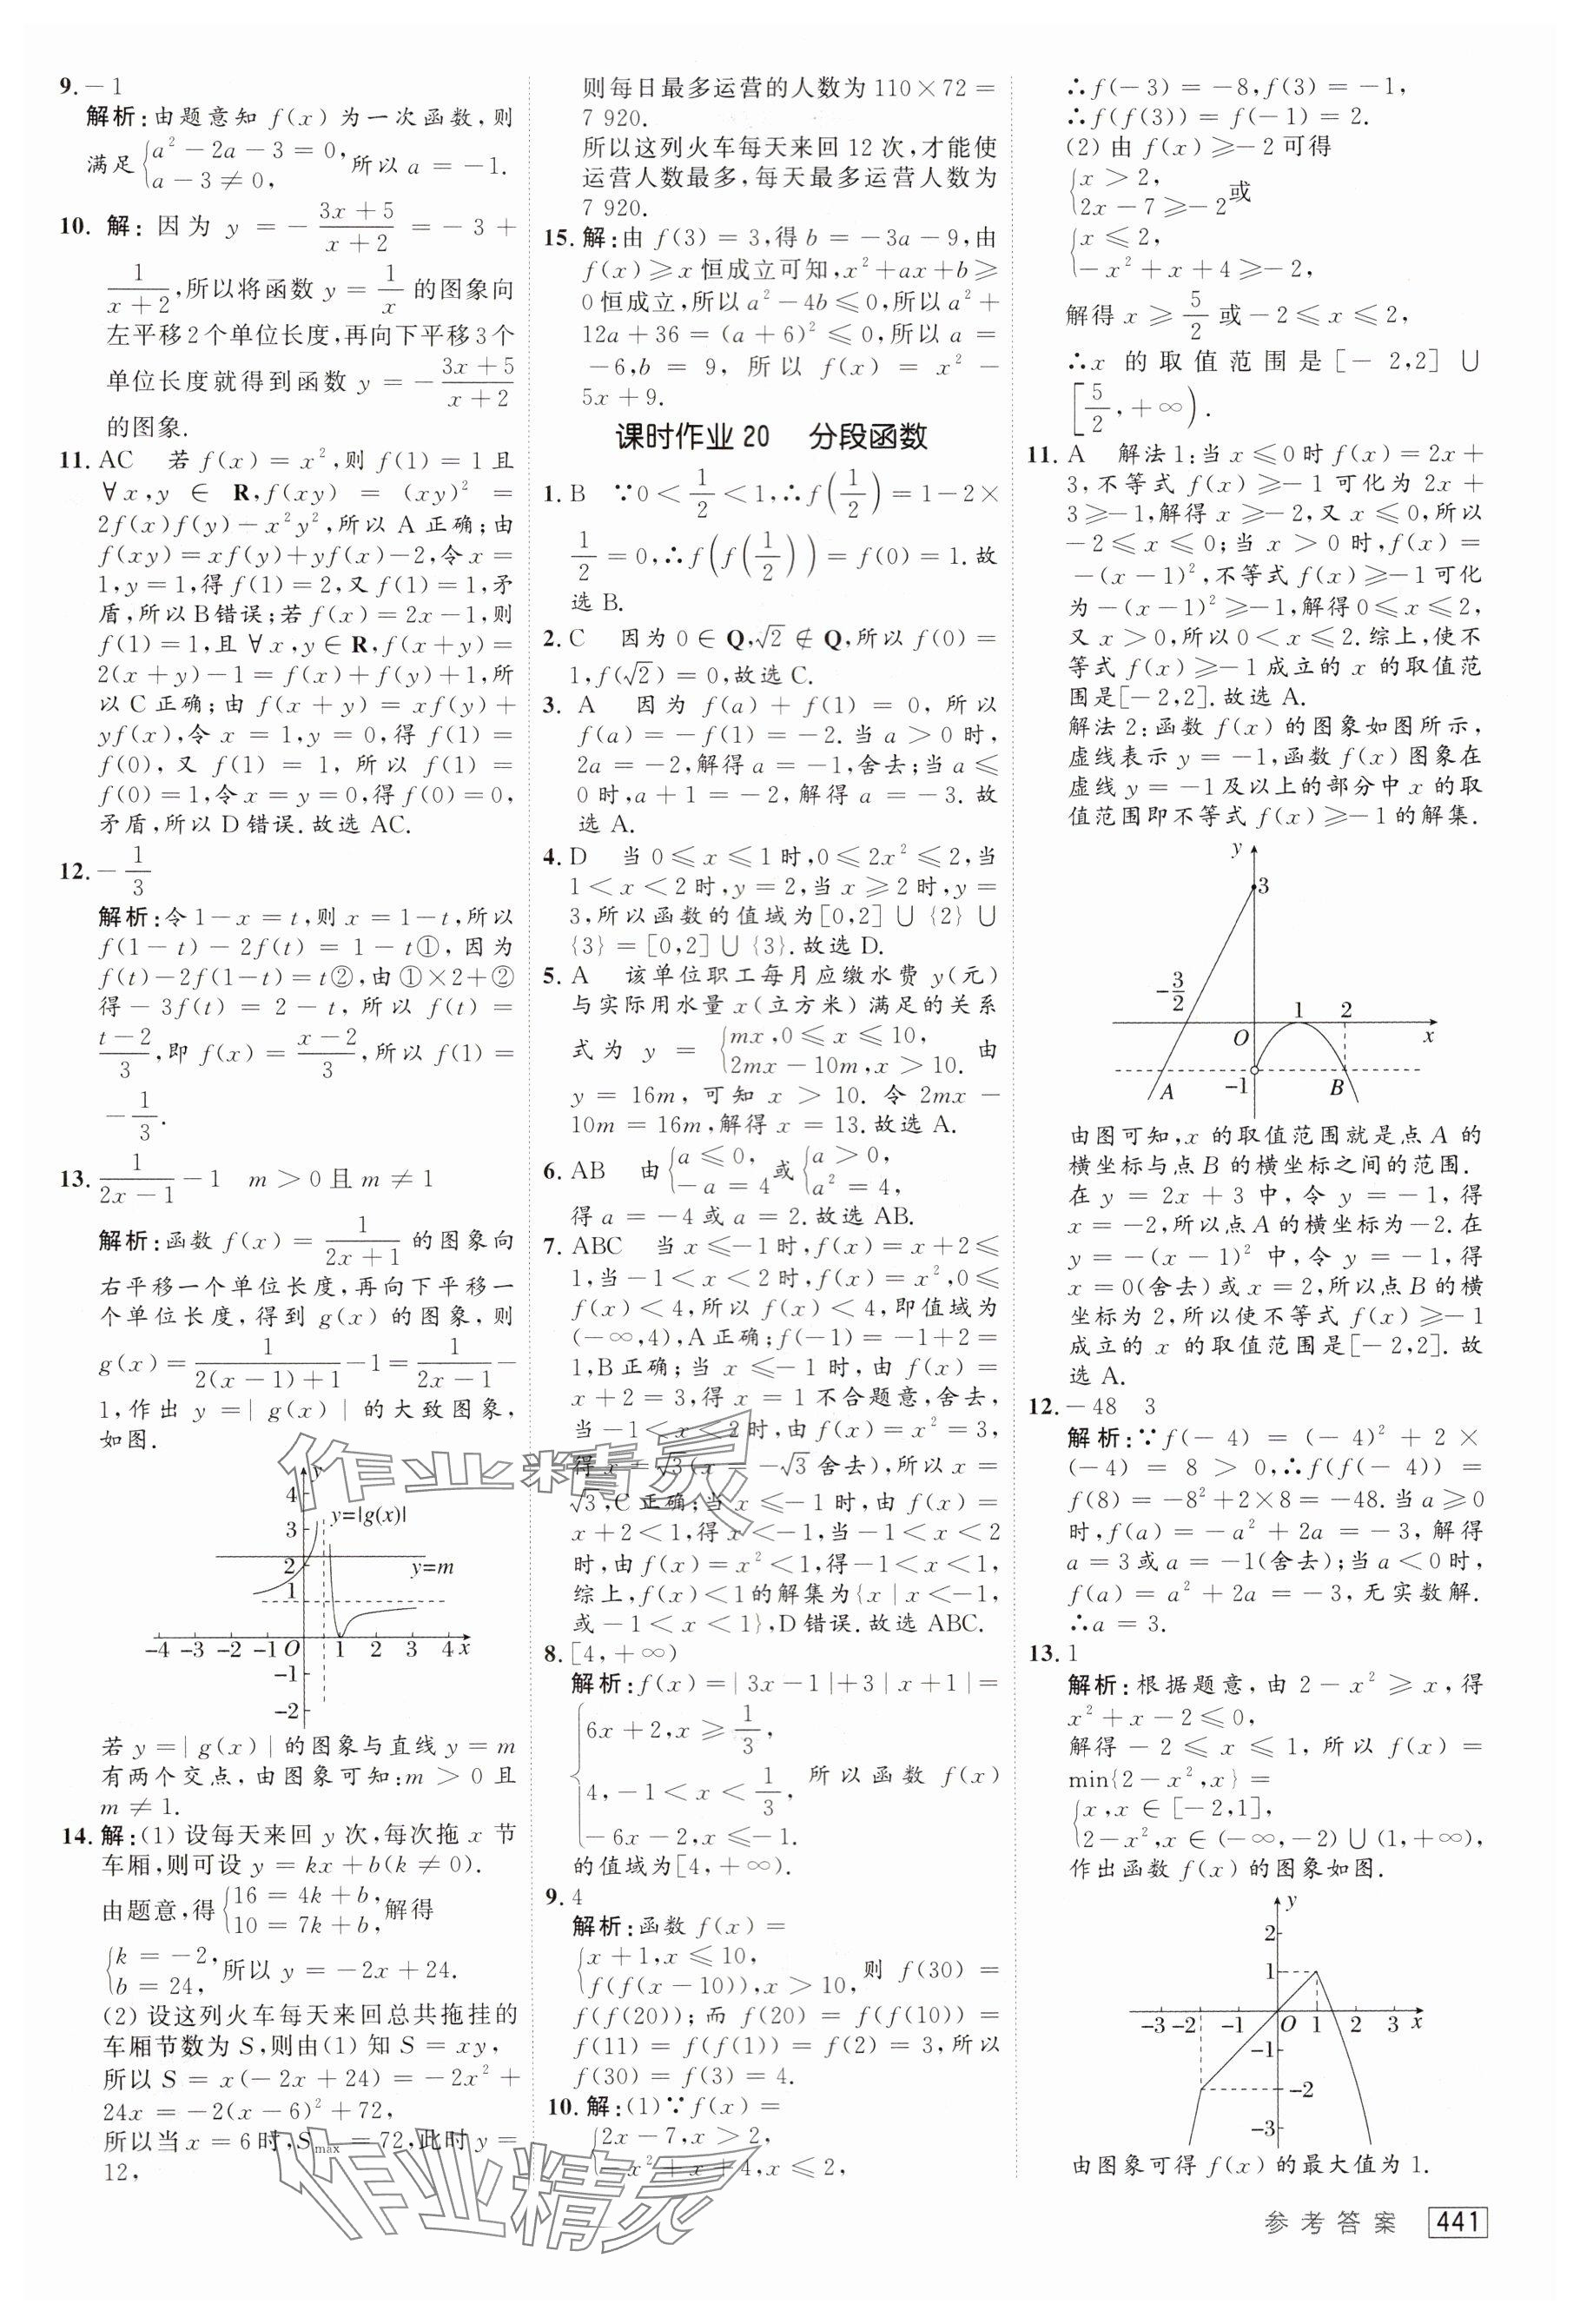 9. －1
解析:由题意知 f(x) 为一次函数,则
满足{a²－2a－3＝0, a－3≠0, 所以 a＝－1.
10. 解: 因为 y＝－(3x＋5)/(x＋2)＝－3＋
1/(x＋2),所以将函数 y＝1/x 的图象向
左平移2个单位长度,再向下平移3个
单位长度就得到函数 y＝－(3x＋5)/(x＋2)
的图象.
11. AC 若 f(x)＝x²,则 f(1)＝1且
∀x,y∈R,f(xy)＝(xy)²＝
2f(x)f(y)－x²y²,所以 A 正确;由
f(xy)＝xf(y)＋yf(x)－2,令 x＝
1,y＝1,得 f(1)＝2,又 f(1)＝1,矛
盾,所以B错误;若 f(x)＝2x－1,则
f(1)＝1,且 ∀x,y∈R,f(x＋y)＝
2(x＋y)－1＝f(x)＋f(y)＋1,所
以 C 正确;由 f(x＋y)＝xf(y)＋
yf(x),令 x＝1,y＝0,得 f(1)＝
f(0),又 f(1)＝1,所以 f(1)＝
f(0)＝1,令 x＝y＝0,得 f(0)＝0,
矛盾,所以 D 错误.故选 AC.
12. －1/3
解析:令 1－x＝t,则 x＝1－t,所以
f(1－t)－2f(t)＝1－t①,因为
f(t)－2f(1－t)＝t②,由①×2＋②
得－3f(t)＝2－t,所以 f(t)＝
(t－2)/3,即 f(x)＝(x－2)/3,所以 f(1)＝
－1/3.
13. 1/(2x－1)－1 m＞0且 m≠1
解析:函数 f(x)＝1/(2x＋1) 的图象向
右平移一个单位长度,再向下平移一
个单位长度,得到 g(x) 的图象,则
g(x)＝1/(2(x－1)＋1)－1＝1/(2x－1)－
1,作出 y＝|g(x)| 的大致图象,
如图.
y
4
3
y=|g(x)|
2
y=m
1
－4 －3 －2 －1 O 1 2 3 4 x
－1
－2
若 y＝|g(x)| 的图象与直线 y＝m
有两个交点,由图象可知:m＞0且
m≠1.
14. 解:(1)设每天来回 y 次,每次拖 x 节
车厢,则可设 y＝kx＋b(k≠0).
由题意,得{16＝4k＋b, 10＝7k＋b, 解得
{k＝－2, b＝24, 所以 y＝－2x＋24.
(2)设这列火车每天来回总共拖挂的
车厢节数为 S,则由(1)知 S＝xy,
所以 S＝x(－2x＋24)＝－2x²＋
24x＝－2(x－6)²＋72,
所以当 x＝6时,Smax＝72,此时 y＝
12,
则每日最多运营的人数为 110×72＝
7 920.
所以这列火车每天来回 12 次,才能使
运营人数最多,每天最多运营人数为
7 920.
15. 解:由 f(3)＝3,得 b＝－3a－9,由
f(x)≥x 恒成立可知,x²＋ax＋b≥
0恒成立,所以 a²－4b≤0,所以 a²＋
12a＋36＝(a＋6)²≤0,所以 a＝
－6,b＝9,所以 f(x)＝x²－
5x＋9.
课时作业20 分段函数
1. B ∵0＜1/2＜1,∴f(1/2)＝1－2×
1/2＝0,∴f(f(1/2))＝f(0)＝1.故
选 B.
2. C 因为 0∈Q,√2∉Q,所以 f(0)＝
1,f(√2)＝0,故选 C.
3. A 因为 f(a)＋f(1)＝0,所以
f(a)＝－f(1)＝－2.当 a＞0时,
2a＝－2,解得 a＝－1,舍去;当 a≤
0时,a＋1＝－2,解得 a＝－3.故
选 A.
4. D 当 0≤x≤1时,0≤2x²≤2,当
1＜x＜2时,y＝2,当 x≥2时,y＝
3,所以函数的值域为[0,2]∪{2}∪
{3}＝[0,2]∪{3}.故选 D.
5. A 该单位职工每月应缴水费 y(元)
与实际用水量 x(立方米)满足的关系
式为 y＝{mx,0≤x≤10, 2mx－10m,x＞10. 由
y＝16m,可知 x＞10.令 2mx－
10m＝16m,解得 x＝13.故选 A.
6. AB 由{a≤0, －a＝4 或{a＞0, a²＝4,
得 a＝－4或 a＝2.故选 AB.
7. ABC 当 x≤－1时,f(x)＝x＋2≤
1,当－1＜x＜2时,f(x)＝x²,0≤
f(x)＜4,所以 f(x)＜4,即值域为
(－∞,4),A正确;f(－1)＝－1＋2＝
1,B正确;当 x≤－1时,由 f(x)＝
x＋2＝3,得 x＝1 不合题意,舍去,
当－1＜x＜2时,由 f(x)＝x²＝3,
得 x＝√3(x＝－√3舍去),所以 x＝
√3,C 正确;当 x≤－1时,由 f(x)＝
x＋2＜1,得 x＜－1,当－1＜x＜2
时,由 f(x)＝x²＜1,得－1＜x＜1,
综上,f(x)＜1的解集为{x|x＜－1,
或－1＜x＜1},D错误.故选 ABC.
8. [4,＋∞)
解析:f(x)＝|3x－1|＋3|x＋1|＝
{6x＋2,x≥1/3,
4,－1＜x＜1/3, 所以函数 f(x)
－6x－2,x≤－1.
的值域为[4,＋∞).
9. 4
解析:函数 f(x)＝
{x＋1,x≤10, f(f(x－10)),x＞10, 则 f(30)＝
f(f(20));而 f(20)＝f(f(10))＝
f(11)＝f(f(1))＝f(2)＝3,所以
f(30)＝f(3)＝4.
10. 解:(1)∵f(x)＝
{2x－7,x＞2,
－x²＋x＋4,x≤2,
∴f(－3)＝－8,f(3)＝－1,
∴f(f(3))＝f(－1)＝2.
(2)由 f(x)≥－2可得
{x＞2, 2x－7≥－2 或
{x≤2,
－x²＋x＋4≥－2,
解得 x≥5/2 或－2≤x≤2,
∴x 的取值范围是[－2,2]∪
[5/2,＋∞).
11. A 解法1:当 x≤0时 f(x)＝2x＋
3,不等式 f(x)≥－1可化为 2x＋
3≥－1,解得 x≥－2,又 x≤0,所以
－2≤x≤0;当 x＞0时,f(x)＝
－(x－1)²,不等式 f(x)≥－1可化
为－(x－1)²≥－1,解得0≤x≤2,
又 x＞0,所以0＜x≤2.综上,使不
等式 f(x)≥－1成立的 x 的取值范
围是[－2,2].故选 A.
解法2:函数 f(x)的图象如图所示,
虚线表示 y＝－1,函数 f(x)图象在
虚线 y＝－1及以上的部分中 x 的取
值范围即不等式 f(x)≥－1的解集.
y
3
－3/2
1 2
O x
A －1 B
由图可知,x 的取值范围就是点 A 的
横坐标与点 B 的横坐标之间的范围.
在 y＝2x＋3 中,令 y＝－1,得
x＝－2,所以点A的横坐标为－2.在
y＝－(x－1)² 中,令 y＝－1,得
x＝0(舍去)或 x＝2,所以点 B 的横
坐标为 2,所以使不等式 f(x)≥－1
成立的 x 的取值范围是[－2,2].故
选 A.
12. －48 3
解析:∵f(－4)＝(－4)²＋2×
(－4)＝8＞0,∴f(f(－4))＝
f(8)＝－8²＋2×8＝－48.当 a≥0
时,f(a)＝－a²＋2a＝－3,解得
a＝3或 a＝－1(舍去);当 a＜0时,
f(a)＝a²＋2a＝－3,无实数解.
∴a＝3.
13. 1
解析:根据题意,由 2－x²≥x,得
x²＋x－2≤0,
解得－2≤x≤1,所以 f(x)＝
min{2－x²,x}＝
{x,x∈[－2,1],
2－x²,x∈(－∞,－2)∪(1,＋∞),
作出函数 f(x)的图象如图.
y
2
1
－3－2 －1 O 1 2 3 x
－1
－2
－3
由图象可得 f(x)的最大值为 1.
作业精灵
作业精灵
参考答案 441